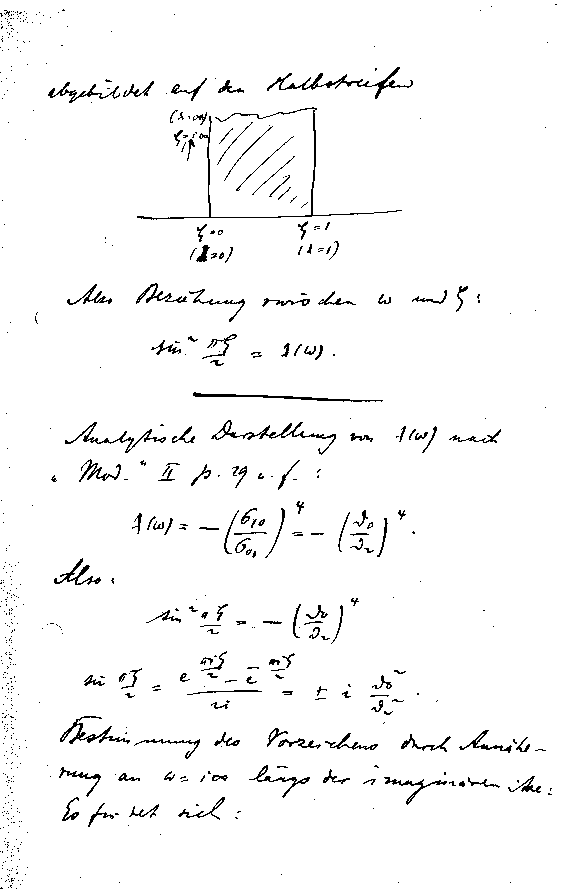 abgebildet auf den Halbstreifen
(λ=∞)
ζ=i∞
ζ=0 ζ=1
(λ=0) (λ=1)
Also Beziehung zwischen ω und ζ:
sin² πζ/2 = λ(ω).
Analytische Darstellung von λ(ω) nach
„Mod." II p. 29 u. f. :
λ(ω) = − (σ₁₀/σ₀₁)⁴ = − (ϑ₀/ϑ₂)⁴.
Also:
sin² πζ/2 = − (ϑ₀/ϑ₂)⁴
sin πζ/2 = (e^(πiζ/2) − e^(−πiζ/2))/2i = ± i ϑ₀²/ϑ₂².
Bestimmung des Vorzeichens durch Annähe-
rung an ω = i∞ längs der imaginären Axe:
Es findet sich: